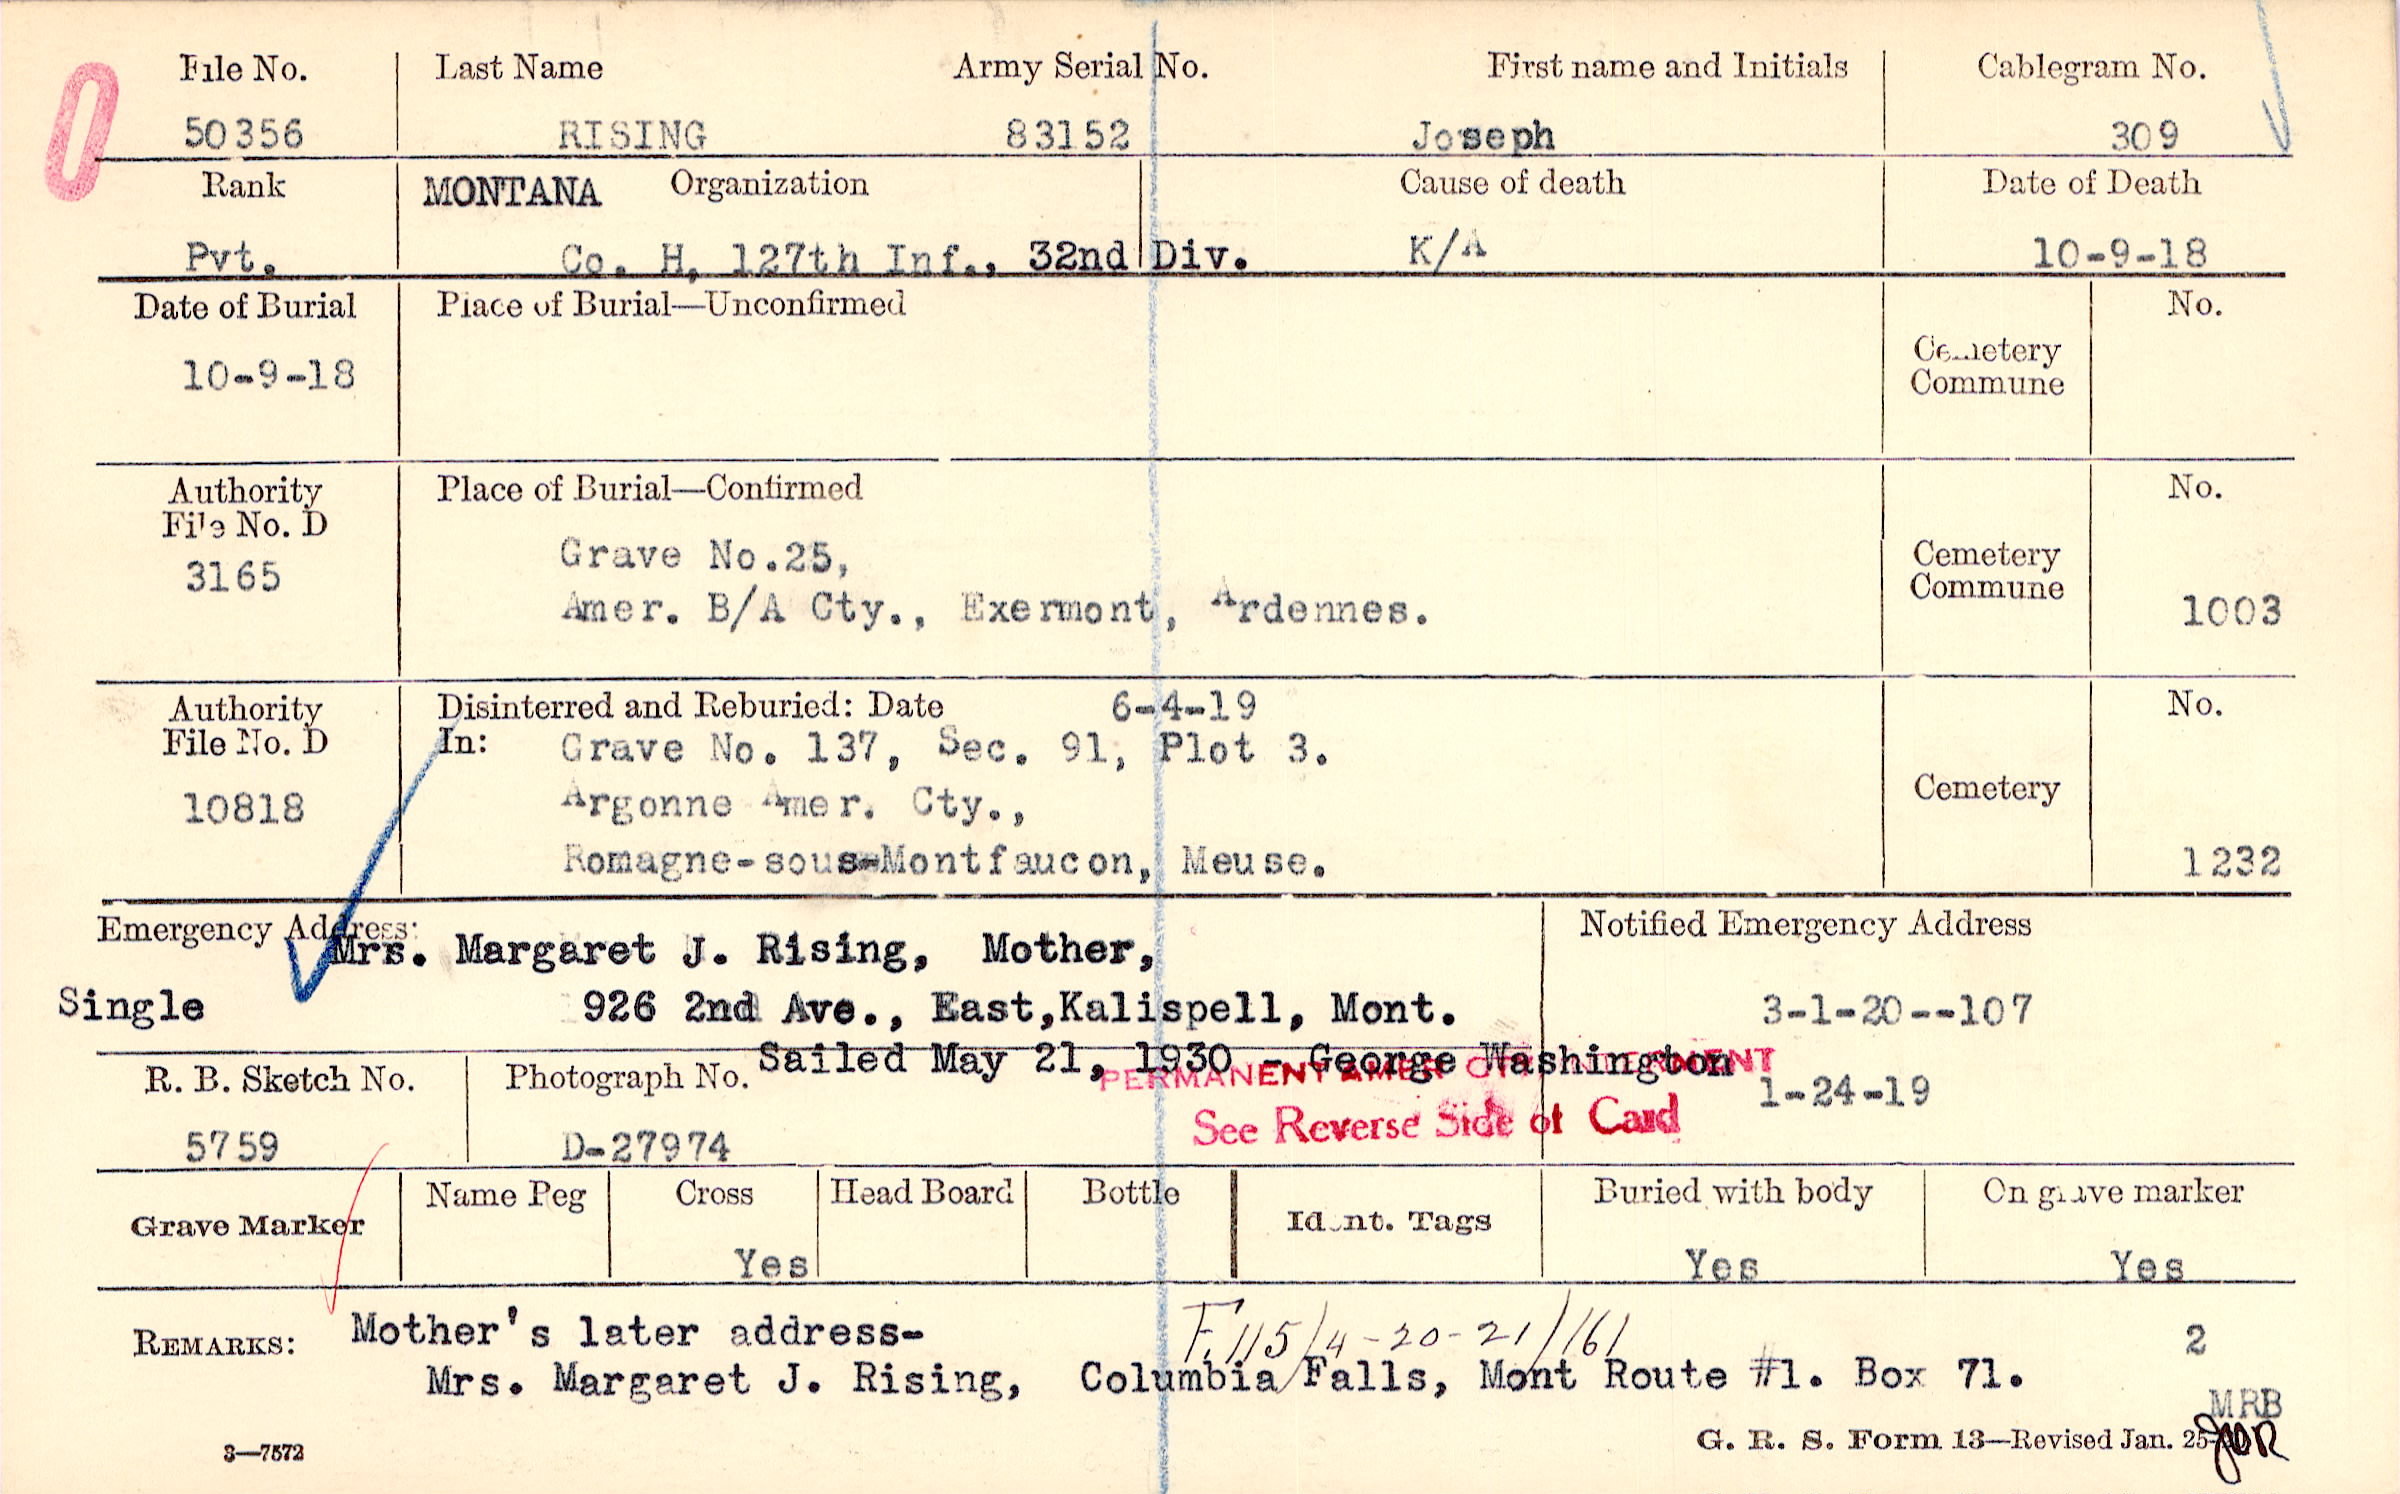 File No. Last Name Army Serial No. First name and Initials Cablegram No.
50356 RISING 83152 Joseph 309
Rank MONTANA Organization Cause of death Date of Death
Pvt. Co. H, 127th Inf., 32nd Div. K/A 10-9-18
Date of Burial Place of Burial—Unconfirmed No.
10-9-18
Cemetery
Commune
Authority Place of Burial—Confirmed No.
File No. D
3165
Grave No.25,
Amer. B/A Cty., Exermont, Ardennes.
Cemetery
Commune
1003
Authority Disinterred and Reburied: Date 6-4-19 No.
File No. D In: Grave No. 137, Sec. 91, Plot 3.
10818 Argonne Amer. Cty., Cemetery
Romagne-sous-Montfaucon, Meuse. 1232
Emergency Address: Notified Emergency Address
Mrs. Margaret J. Rising, Mother,
Single 926 2nd Ave., East,Kalispell, Mont. 3-1-20--107
Sailed May 21, 1930 - George Washington
R. B. Sketch No. Photograph No. PERMANENT AMER 1-24-19
See Reverse Side of Card
5759 D-27974
Grave Marker Name Peg Cross Head Board Bottle Ident. Tags Buried with body On grave marker
Yes Yes Yes
REMARKS: Mother's later address- F.115/4-20-21/161 2
Mrs. Margaret J. Rising, Columbia Falls, Mont Route #1. Box 71.
MRB
3—7572 G. R. S. Form 13—Revised Jan. 25